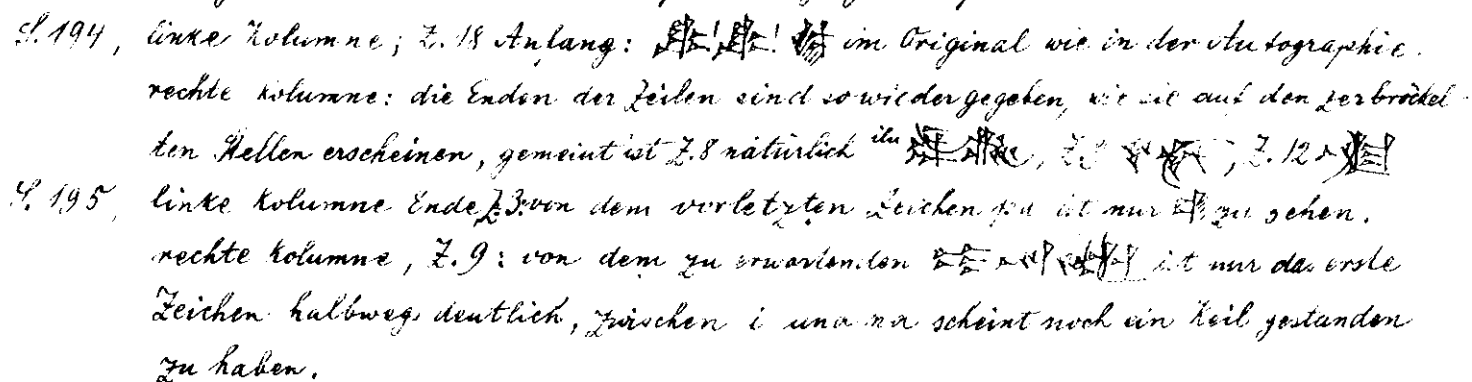 S. 194, linke Kolumne; Z. 18 Anfang: im Original wie in der Autographie.
rechte Kolumne: die Enden der Zeilen sind so wiedergegeben, wie sie auf den zerbröckel-
ten Stellen erscheinen, gemeint ist Z. 8 natürlich ilu , Z. , Z. 12
S. 195, linke Kolumne Ende Z. 3: von dem vorletzten Zeichen ist nur zu sehen.
rechte Kolumne, Z. 9: von dem zu erwartenden ist nur das erste
Zeichen halbwegs deutlich, zwischen i und na scheint noch ein Keil gestanden
zu haben.